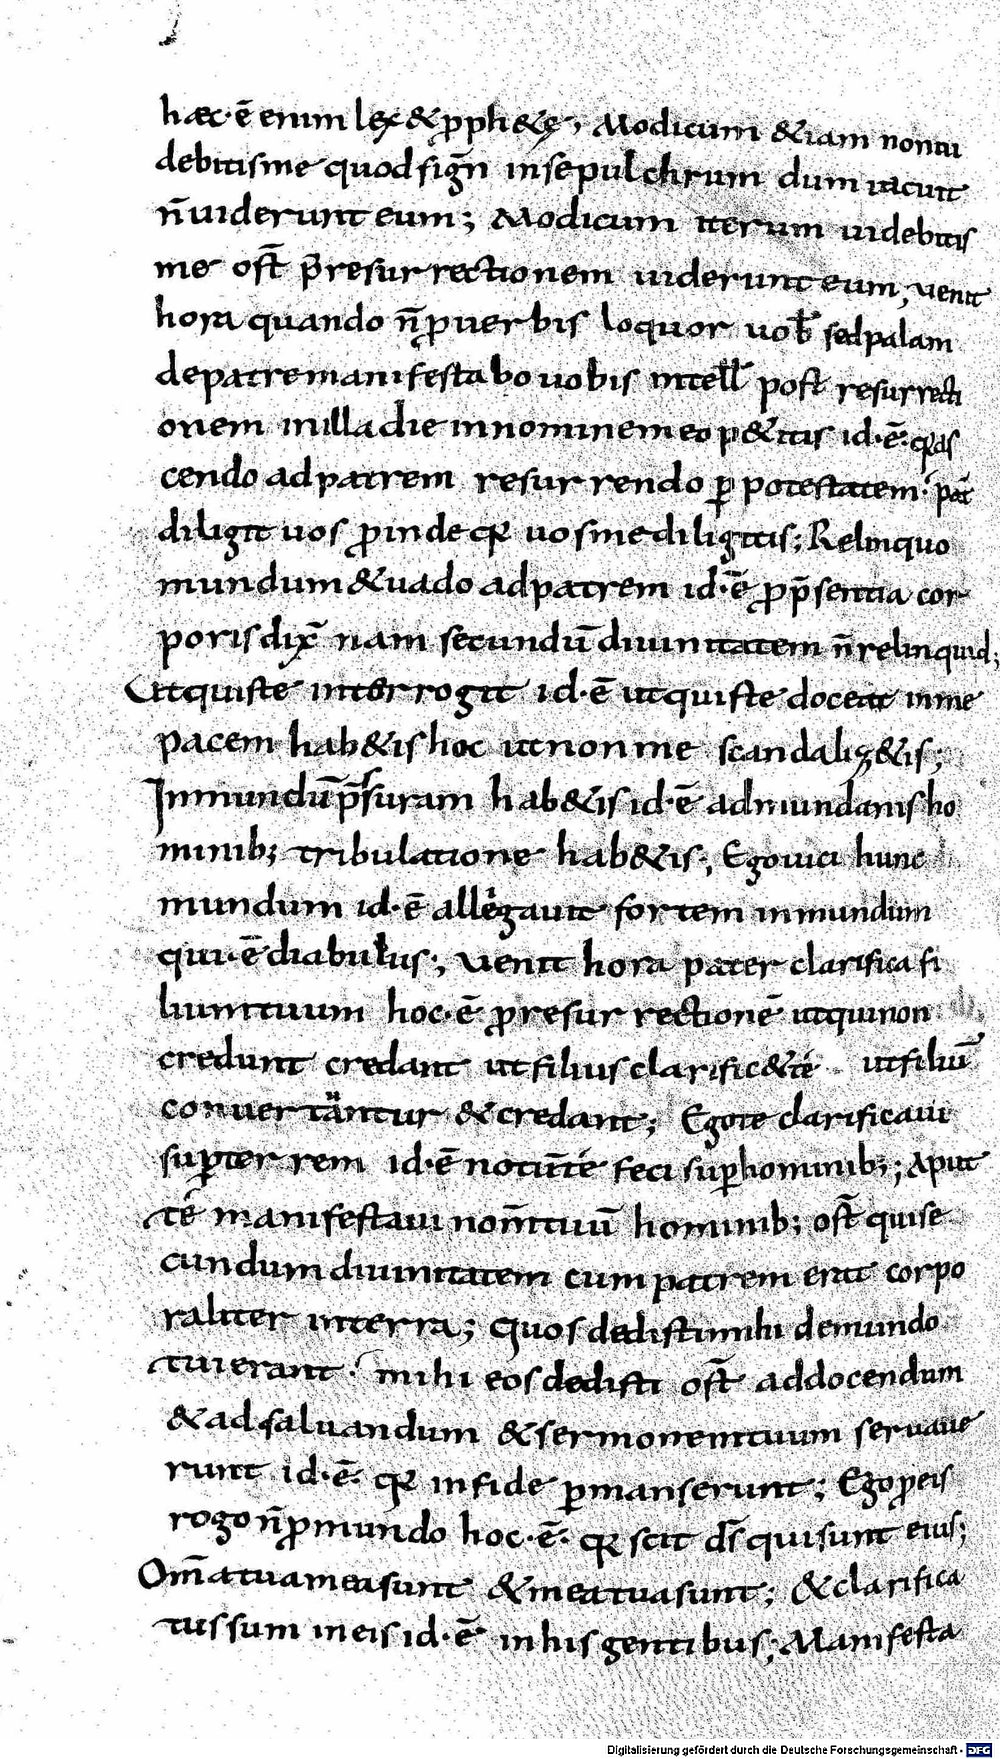 haec·ē enim lex & ꝓph&ę; Modicum & iam non ui
debitis me quod sigñ in sepulchrum dum iacuit
ñ uiderunt eum; Modicum iterum uidebitis
me ost̄ p̄ resurrectionem uiderunt eum; uenit
hora quando ñ ꝓuerbis loquor uob̄ sed palam
de patre manifestabo uobis intell̄ post resurrecti
onem in illa die in nomine meo p&itis id·ē· qꝛ as
cendo ad patrem resurrendo ꝑ potestatem· pat̄
diligit uos ꝓinde qꝛ uos me diligitis; Relinquo
mundum & uado ad patrem id·ē ꝓ p̄sentia cor
poris dix̄ nam secundū diuinitatem ñ relinquid;
Ut quis te interrogit id·ē ut quis te doceat in me
pacem hab&is hoc ut non me scandaliz&is;
In mundū p̄suram hab&is id·ē ad mundanis ho
minib; tribulatione hab&is; Ego uici hunc
mundum id·ē allegauit fortem in mundum
qui·ē diabulus; uenit hora pater clarifica fi
lium tuum hoc·ē ꝓ resurrectionē ut qui non
credunt credant ut filius clarific& té ut filiū
conuertantur & credant; Ego te clarificaui
super terrem id·ē notū té feci super hominib;; Aput
té manifestaui nom̄ tuū hominib; ost̄ qui se
cundum diuinitatem cum patrem erat corpo
raliter in terra; Quos dedisti mihi de mundo
tui erant· mihi eos dedisti ost̄ ad docendum
& ad saluandum & sermonem tuum seruaue
runt id·ē· qꝛ in fide ꝑmanserunt; Ego ꝓ eis
rogo ñ ꝓ mundo hoc·ē· qꝛ scit d̄s qui sunt eius;
Om̄a tua mea sunt & mea tua sunt; & clarifica
tus sum in eis id·ē in his gentibus; Manifesta
Digitalisierung gefördert durch die Deutsche Forschungsgemeinschaft - DFG